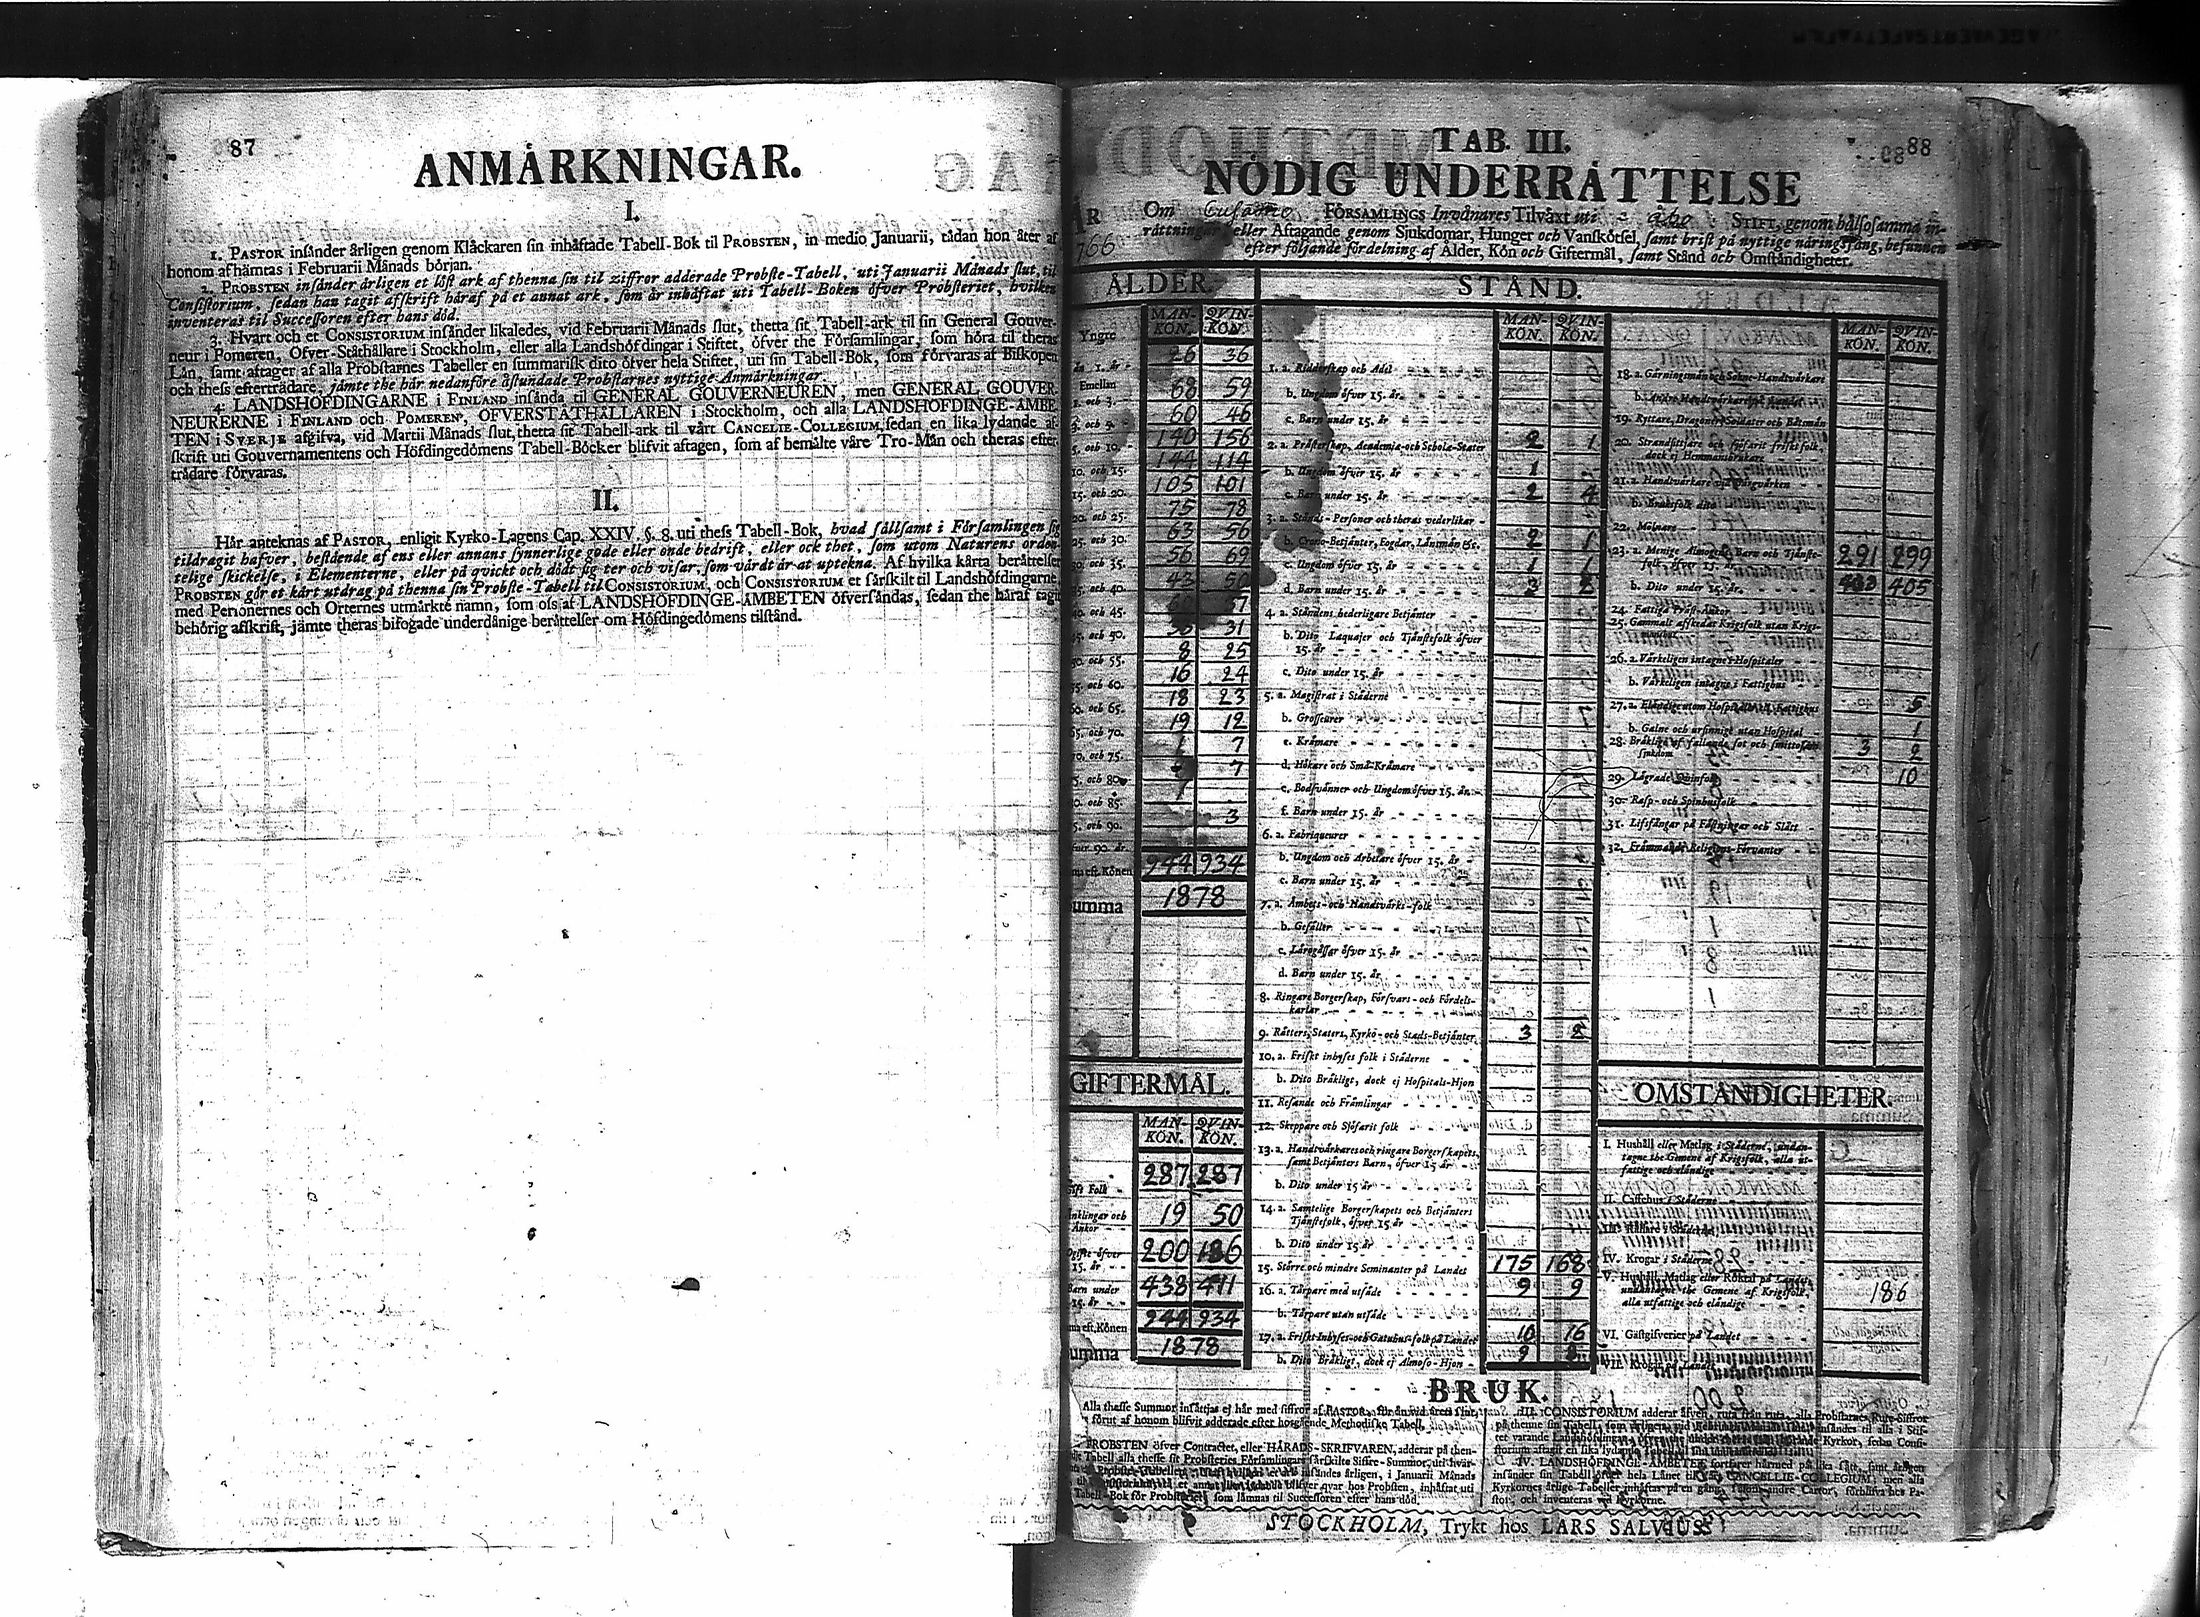 87
ANMÅRKNINGAR.
I.
1. PASTOR insånder årligen genom Klåckaren sin inhåftade Tabell-Bok til PROBSTEN, in medio Januarii, tådan hon åter af
honom afhåmtas i Februarii Månads början.
2. PROBSTEN insånder årligen et löst ark af thenna sin til ziffror adderade Probste-Tabell, uti Januarii Månads slut, til
Consistorium, sedan han tagit afskrift håraf på et annat ark, som år inhåftat uti Tabell-Boken öfver Probsteriet, hvilken
inventeras til Successoren efter hans död.
3. Hvart och et CONSISTORIUM insånder likaledes, vid Februarii Månads slut, thetta sit Tabell-ark til sin General Gouver-
neur i Pomeren, Öfver-Ståthållare i Stockholm, eller alla Landshöfdingar i Stiftet, öfver the Församlingar, som höra til theras
Lån, samt aftager af alla Probstarnes Tabeller en summarisk dito öfver hela Stiftet, uti sin Tabell-Bok, som förvaras af Biskopen
och thess efterträdare, jämte the hår nedanföre åstundade Probstarnes nyttige Anmårkningar.
4. LANDSHÖFDINGARNE i FINLAND insånda til GENERAL GOUVERNEUREN, men GENERAL GOUVER-
NEURERNE i FINLAND och POMEREN, ÖFVERSTÅTHÅLLAREN i Stockholm, och alla LANDSHÖFDINGE-ÅMBE-
TEN i SVERJE afgifva, vid Martii Månads slut, thetta sit Tabell-ark til vårt CANCELIE-COLLEGIUM, sedan en lika lydande af-
skrift uti Gouvernamentens och Höfdingedömens Tabell-Böcker blifvit aftagen, som af bemålte våre Tro-Mån och theras efter-
trådare förvaras.
II.
Hår anteknas af PASTOR, enligit Kyrko-Lagens Cap. XXIV. §. 8. uti thess Tabell-Bok, hvad sållsamt i Församlingen sig
tildragit hafver, bestående af ens eller annans synnerlige gode eller onde bedrift, eller ock thet, som utom Naturens orden-
telige skickelse, i Elementerne, eller på qvickt och dödt sig ter och visar, som vårdt år at uptekna. Af hvilka kårta beråttelser
PROBSTEN gör et kårt utdrag på thenna sin Probste-Tabell til CONSISTORIUM, och CONSISTORIUM et sårskilt til Landshöfdingarne,
med Personernes och Orternes utmårkte namn, som oss af LANDSHÖFDINGE-ÅMBETEN öfversåndas, sedan the håraf tagit
behörig afskrift, jämte theras bifogade underdånige beråttelser om Höfdingedömens tilstånd.
88
TAB. III.
NÖDIG UNDERRÅTTELSE
Om FÖRSAMLINGS Invånares Tilvåxt uti Åbo STIFT, genom hålsosamma in-
råttningar eller Aftagande genom Sjukdomar, Hunger och Vanskötsel, samt brist på nyttige näringsfång, befunnen
766 efter följande fördelning af Ålder, Kön och Giftermål, samt Stånd och Omståndigheter.
ÅLDER.
MAN-KÖN. QVIN-KÖN.
Yngre
ån 1. år 26 36
Emellan
1. och 3. 68 59
3. och 5. 60 46
5. och 10. 140 156
10. och 15. 144 114
15. och 20. 105 101
20. och 25. 75 78
25. och 30. 63 56
30. och 35. 56 69
35. och 40. 43 50
40. och 45.
45. och 50. 31
50. och 55. 8 25
55. och 60. 16 24
60. och 65. 18 23
65. och 70. 19 12
70. och 75. 1 7
75. och 80. 7
80. och 85. 1
85. och 90. 3
944 934
Summa 1878
GIFTERMÅL.
MAN-KÖN. QVIN-KÖN.
Gift Folk 287 287
Enklingar och Ånkor 19 50
Ogifte öfver 15. år 200 186
Barn under 15. år 438 411
Summa eft. Könen 944 934
Summa 1878
STÅND.
MAN-KÖN. QVIN-KÖN.
1. a. Ridderskap och Adel
b. Ungdom öfver 15. år
c. Barn under 15. år
2. a. Pråsterskap, Academiæ-och Scholæ-Stater 2 1
b. Ungdom öfver 15. år 1
c. Barn under 15. år 2 4
3. a. Stånds-Personer och theras vederlikar
b. Crono-Betjånter, Fogdar, Lånsmån &c. 2 1
c. Ungdom öfver 15. år 1 1
d. Barn under 15. år 3 2
4. a. Ståndens hederligare Betjånter
b. Dito Laquajer och Tjånstefolk öfver
15. år
c. Dito under 15. år
5. a. Magistrat i Ståderne
b. Grosseurer
c. Kråmare
d. Hökare och Små-Kråmare
e. Bodsvånner och Ungdom öfver 15. år
f. Barn under 15. år
6. a. Fabriqueurer
b. Ungdom och Arbetare öfver 15. år
c. Barn under 15. år
7. a. Åmbets- och Handtvårks-folk
b. Gesåller
c. Lårogåssar öfver 15. år
d. Barn under 15. år
8. Ringare Borgerskap, Försvars- och Fördels-
karlar
9. Råtters, Staters, Kyrko- och Stads-Betjånter 3 8
10. a. Friskt inhyses folk i Ståderne
b. Dito Bråkligt, dock ej Hospitals-Hjon
11. Resande och Fråmlingar
12. Skeppare och Sjöfarit folk
13. a. Handtvårkares och ringare Borgerskapets,
samt Betjånters Barn, öfver 15 år
b. Dito under 15 år
14. a. Samtelige Borgerskapets och Betjånters
Tjånstefolk, öfver 15. år
b. Dito under 15. år
15. Större och mindre Seminanter på Landet 175 168
16. a. Tårpare med utsåde 9 9
b. Tårpare utan utsåde
17. a. Friskt Inhyses-och Gatuhus-folk på Landet 10 16
b. Dito Bråkligt, dock ej Almoso-Hjon 9 8
MAN-KÖN. QVIN-KÖN.
18. a. Gårningsmån och Sokne-Handtvårkare
b. Andre Handtvårkare på Landet
19. Ryttare, Dragoner, Soldater och Båtsmån
20. Strandsittjare och sjöfarit friskt folk,
dock ej Hemmansbrukare
21. a. Handtvårkare vid Bårgvårken
b. Bruksfolk dito
22. Mölnare
23. a. Menige Almogens Barn och Tjånste-
folk, öfver 15. år 291 299
b. Dito under 15. år 405
24. Fattiga Pråst-Ånkor
25. Gammalt afskedat Krigsfolk utan Krigs-
manshus
26. a. Vårkeligen intagne i Hospitaler
b. Vårkeligen intagne i Fattighus
27. a. Elåndige utom Hospital och Fattighus 5
b. Galne och ursinnigt utan Hospital 1
28. Bråklige af fallande sot och smittosam
sjukdom 3 2
29. Lågrade Qvinfolk 10
30. Rasp- och Spinhusfolk
31. Lifsfångar på Fåstningar och Slått
32. Fråmmande Religions-Förvanter
OMSTÅNDIGHETER.
I. Hushåll eller Matlag i Ståderne, undan-
tagne the Gemene af Krigsfolk, alla ut-
fattige och elåndige
II. Caffehus i Ståderne
III. Kållare i Ståderne
IV. Krogar i Ståderne
V. Hushåll, Matlag eller Röktal på Landet,
undantagne the Gemene af Krigsfolk,
alla utfattige och elåndige 186
VI. Gåstgifverier på Landet
VII. Krogar på Landet
BRUK.
Alla thesse Summor insåttjas ej hår med siffror af PASTOR, för ån vid årets slut,
förut af honom blifvit adderade efter hosgående Methodiske Tabell.
PROBSTEN öfver Contractet, eller HÅRADS-SKRIFVAREN, adderar på then-
Tabell alla thesse sit Probsteries Församlingars sårskilte Siffre-Summor, uti hvar-
insåndes årligen, i Januarii Månads
blifver qvar hos Probsten, inhåftat uti
Tabell-Bok för Probsteriet, som låmnas til Successoren efter hans död.
III. CONSISTORIUM adderar åfven, ruta från ruta, alla Probstarnes Rute-Siffror
på thenne sin Tabell, som årligen, vid
IV. LANDSHÖFDINGE-ÅMBETET fortfarer hårmed på lika sått, samt årligen
insånder sin Tabell öfver hela Lånet til CANCELLIE-COLLEGIUM, men alla
Kyrkornes årlige Tabeller inhåftas på en gång, såsom andre Cartor, förblifva hos Pa-
stor, och inventeras vid Kyrkorne.
STOCKHOLM, Trykt hos LARS SALVIUS